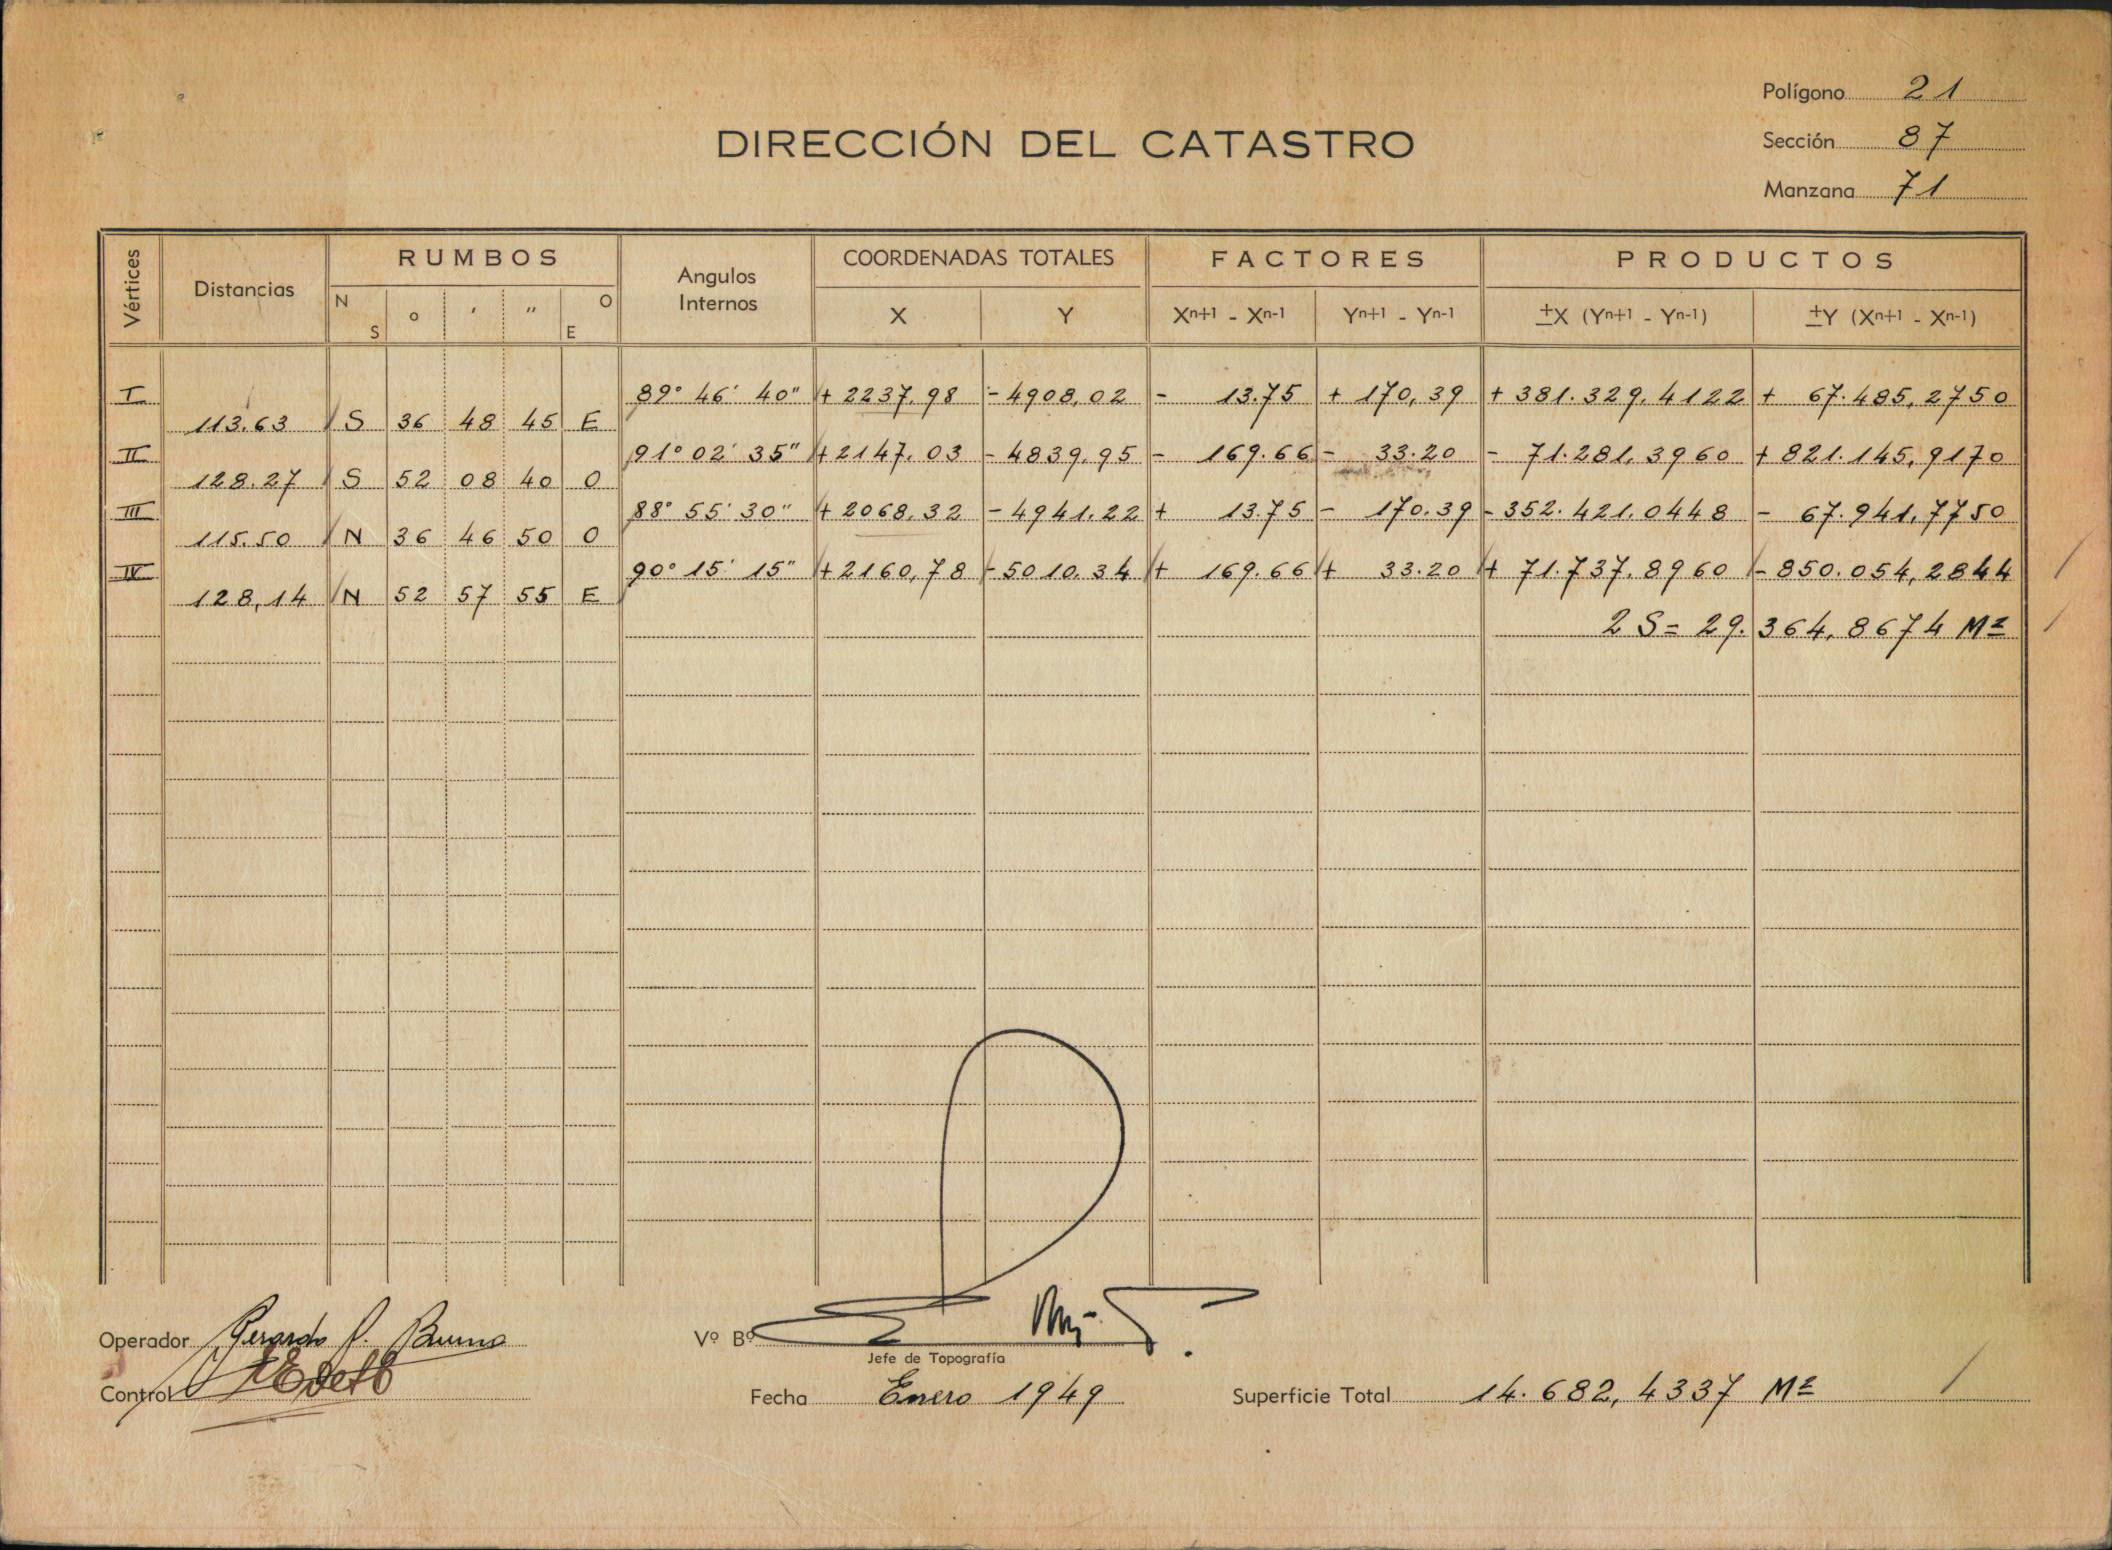 Polígono 21
DIRECCIÓN DEL CATASTRO
Sección 87
Manzana 71
Vértices Distancias RUMBOS Angulos Internos COORDENADAS TOTALES FACTORES PRODUCTOS
N S ° ' " O E X Y Xn+1 - Xn-1 Yn+1 - Yn-1 ±X (Yn+1 - Yn-1) ±Y (Xn+1 - Xn-1)
I 89° 46' 40" + 2237.98 - 4908,02 - 13.75 + 170,39 + 381.329.4122 + 67.485,2750
113.63 S 36 48 45 E
II 91° 02' 35" + 2147.03 - 4839.95 - 169.66 - 33.20 - 71.281,3960 + 821.145,9170
128.27 S 52 08 40 O
III 88° 55' 30" + 2068,32 - 4941.22 + 13.75 - 170.39 - 352.421.0448 - 67.941,7750
115.50 N 36 46 50 O
IV 90° 15' 15" + 2160,78 - 5010.34 + 169.66 + 33.20 + 71.737.8960 - 850.054,2844
128,14 N 52 57 55 E
2 S = 29.364,8674 M2
Operador Gerardo P. Bruno
Vº Bº
Jefe de Topografía
Control
Fecha Enero 1949
Superficie Total 14.682,4337 M2